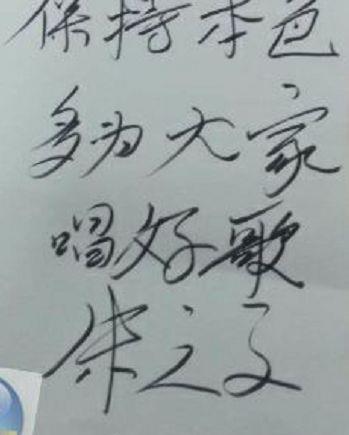 保持本色
多为大家
唱好歌
朱之文